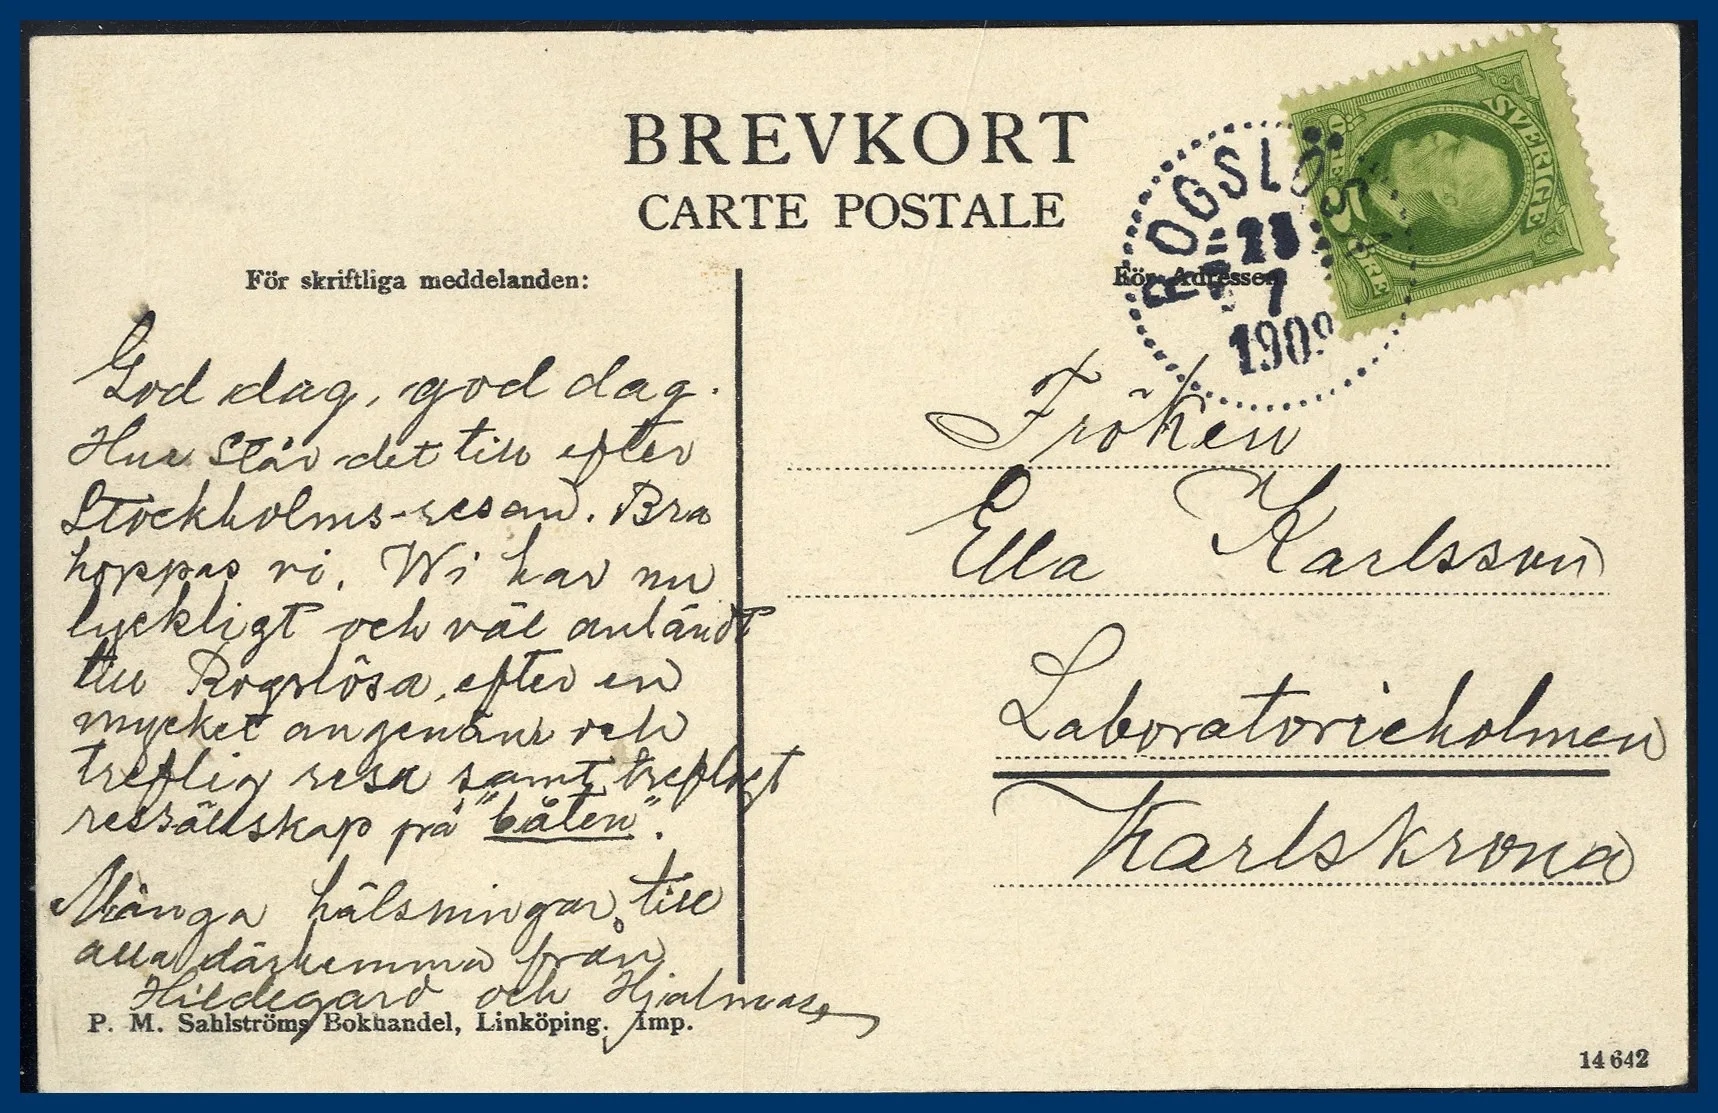 BREVKORT
CARTE POSTALE
För skriftliga meddelanden:
För Adressen
ROGSLÖSA
23
7
1909
SVERIGE
5
ÖRE
God dag, god dag.
Hur står det till efter
Stockholms-resan. Bra
hoppas vi. Wi har nu
lyckligt och väl anländt
till Rogslösa, efter en
mycket angenäm och
treflig resa samt trefligt
ressällskap på "båten".
Många hälsningar till
alla därhemma från
Hildegard och Hjalmar
Fröken
Ella Karlsson
Laboratorieholmen
Karlskrona
P. M. Sahlströms Bokhandel, Linköping. Imp.
14642